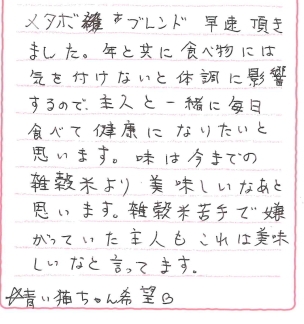 メタボ雑穀ブレンド 早速 頂き
ました。年と共に食べ物には
気を付けないと体調に影響
するので、主人と一緒に毎日
食べて健康になりたいと
思います。味は今までの
雑穀米より美味しいなあと
思います。雑穀米苦手で嫌
がっていた主人もこれは美味
しいなと言ってます。
青い猫ちゃん希望B